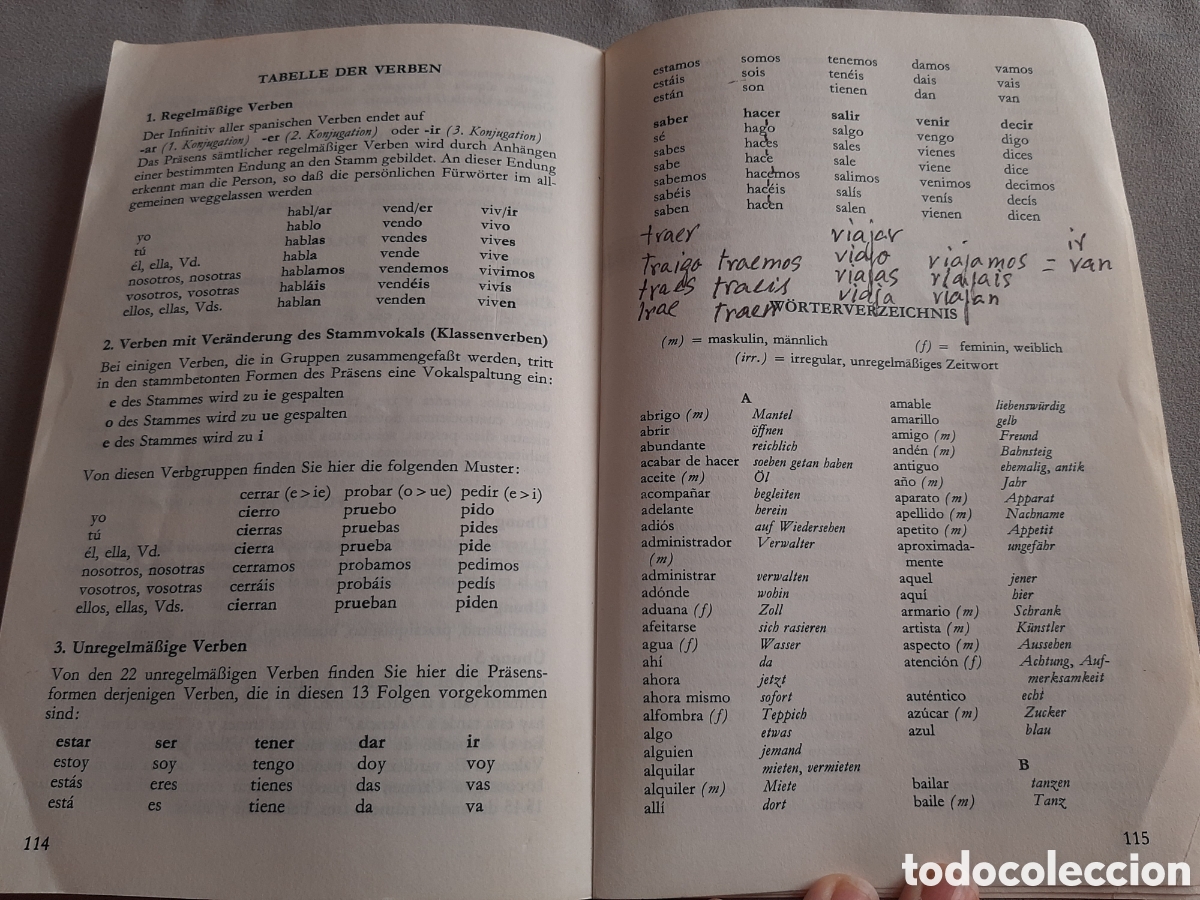 TABELLE DER VERBEN
1. Regelmäßige Verben
Der Infinitiv aller spanischen Verben endet auf
-ar (1. Konjugation) -er (2. Konjugation) oder -ir (3. Konjugation)
Das Präsens sämtlicher regelmäßiger Verben wird durch Anhängen
einer bestimmten Endung an den Stamm gebildet. An dieser Endung
erkennt man die Person, so daß die persönlichen Fürwörter im all-
gemeinen weggelassen werden
habl/ar vend/er viv/ir
yo hablo vendo vivo
tú hablas vendes vives
él, ella, Vd. habla vende vive
nosotros, nosotras hablamos vendemos vivimos
vosotros, vosotras habláis vendéis vivís
ellos, ellas, Vds. hablan venden viven
2. Verben mit Veränderung des Stammvokals (Klassenverben)
Bei einigen Verben, die in Gruppen zusammengefaßt werden, tritt
in den stammbetonten Formen des Präsens eine Vokalspaltung ein:
e des Stammes wird zu ie gespalten
o des Stammes wird zu ue gespalten
e des Stammes wird zu i
Von diesen Verbgruppen finden Sie hier die folgenden Muster:
cerrar (e > ie) probar (o > ue) pedir (e > i)
yo cierro pruebo pido
tú cierras pruebas pides
él, ella, Vd. cierra prueba pide
nosotros, nosotras cerramos probamos pedimos
vosotros, vosotras cerráis probáis pedís
ellos, ellas, Vds. cierran prueban piden
3. Unregelmäßige Verben
Von den 22 unregelmäßigen Verben finden Sie hier die Präsens-
formen derjenigen Verben, die in diesen 13 Folgen vorgekommen
sind:
estar ser tener dar ir
estoy soy tengo doy voy
estás eres tienes das vas
está es tiene da va
114
estamos somos tenemos damos vamos
estáis sois tenéis dais vais
están son tienen dan van
saber hacer salir venir decir
sé hago salgo vengo digo
sabes haces sales vienes dices
sabe hace sale viene dice
sabemos hacemos salimos venimos decimos
sabéis hacéis salís venís decís
saben hacen salen vienen dicen
traer viajar ir
traigo traemos viajo viajamos = van
traes traeis viajas viajais
trae traen viaja viajan
WÖRTERVERZEICHNIS
(m) = maskulin, männlich (f) = feminin, weiblich
(irr.) = irregular, unregelmäßiges Zeitwort
A
abrigo (m) Mantel
abrir öffnen
abundante reichlich
acabar de hacer soeben getan haben
aceite (m) Öl
acompañar begleiten
adelante herein
adiós auf Wiedersehen
administrador Verwalter
(m)
administrar verwalten
adónde wohin
aduana (f) Zoll
afeitarse sich rasieren
agua (f) Wasser
ahí da
ahora jetzt
ahora mismo sofort
alfombra (f) Teppich
algo etwas
alguien jemand
alquilar mieten, vermieten
alquiler (m) Miete
allí dort
amable liebenswürdig
amarillo gelb
amigo (m) Freund
andén (m) Bahnsteig
antiguo ehemalig, antik
año (m) Jahr
aparato (m) Apparat
apellido (m) Nachname
apetito (m) Appetit
aproximada- ungefähr
mente
aquel jener
aquí hier
armario (m) Schrank
artista (m) Künstler
aspecto (m) Aussehen
atención (f) Achtung, Auf-
merksamkeit
auténtico echt
azúcar (m) Zucker
azul blau
B
bailar tanzen
baile (m) Tanz
115
todocoleccion